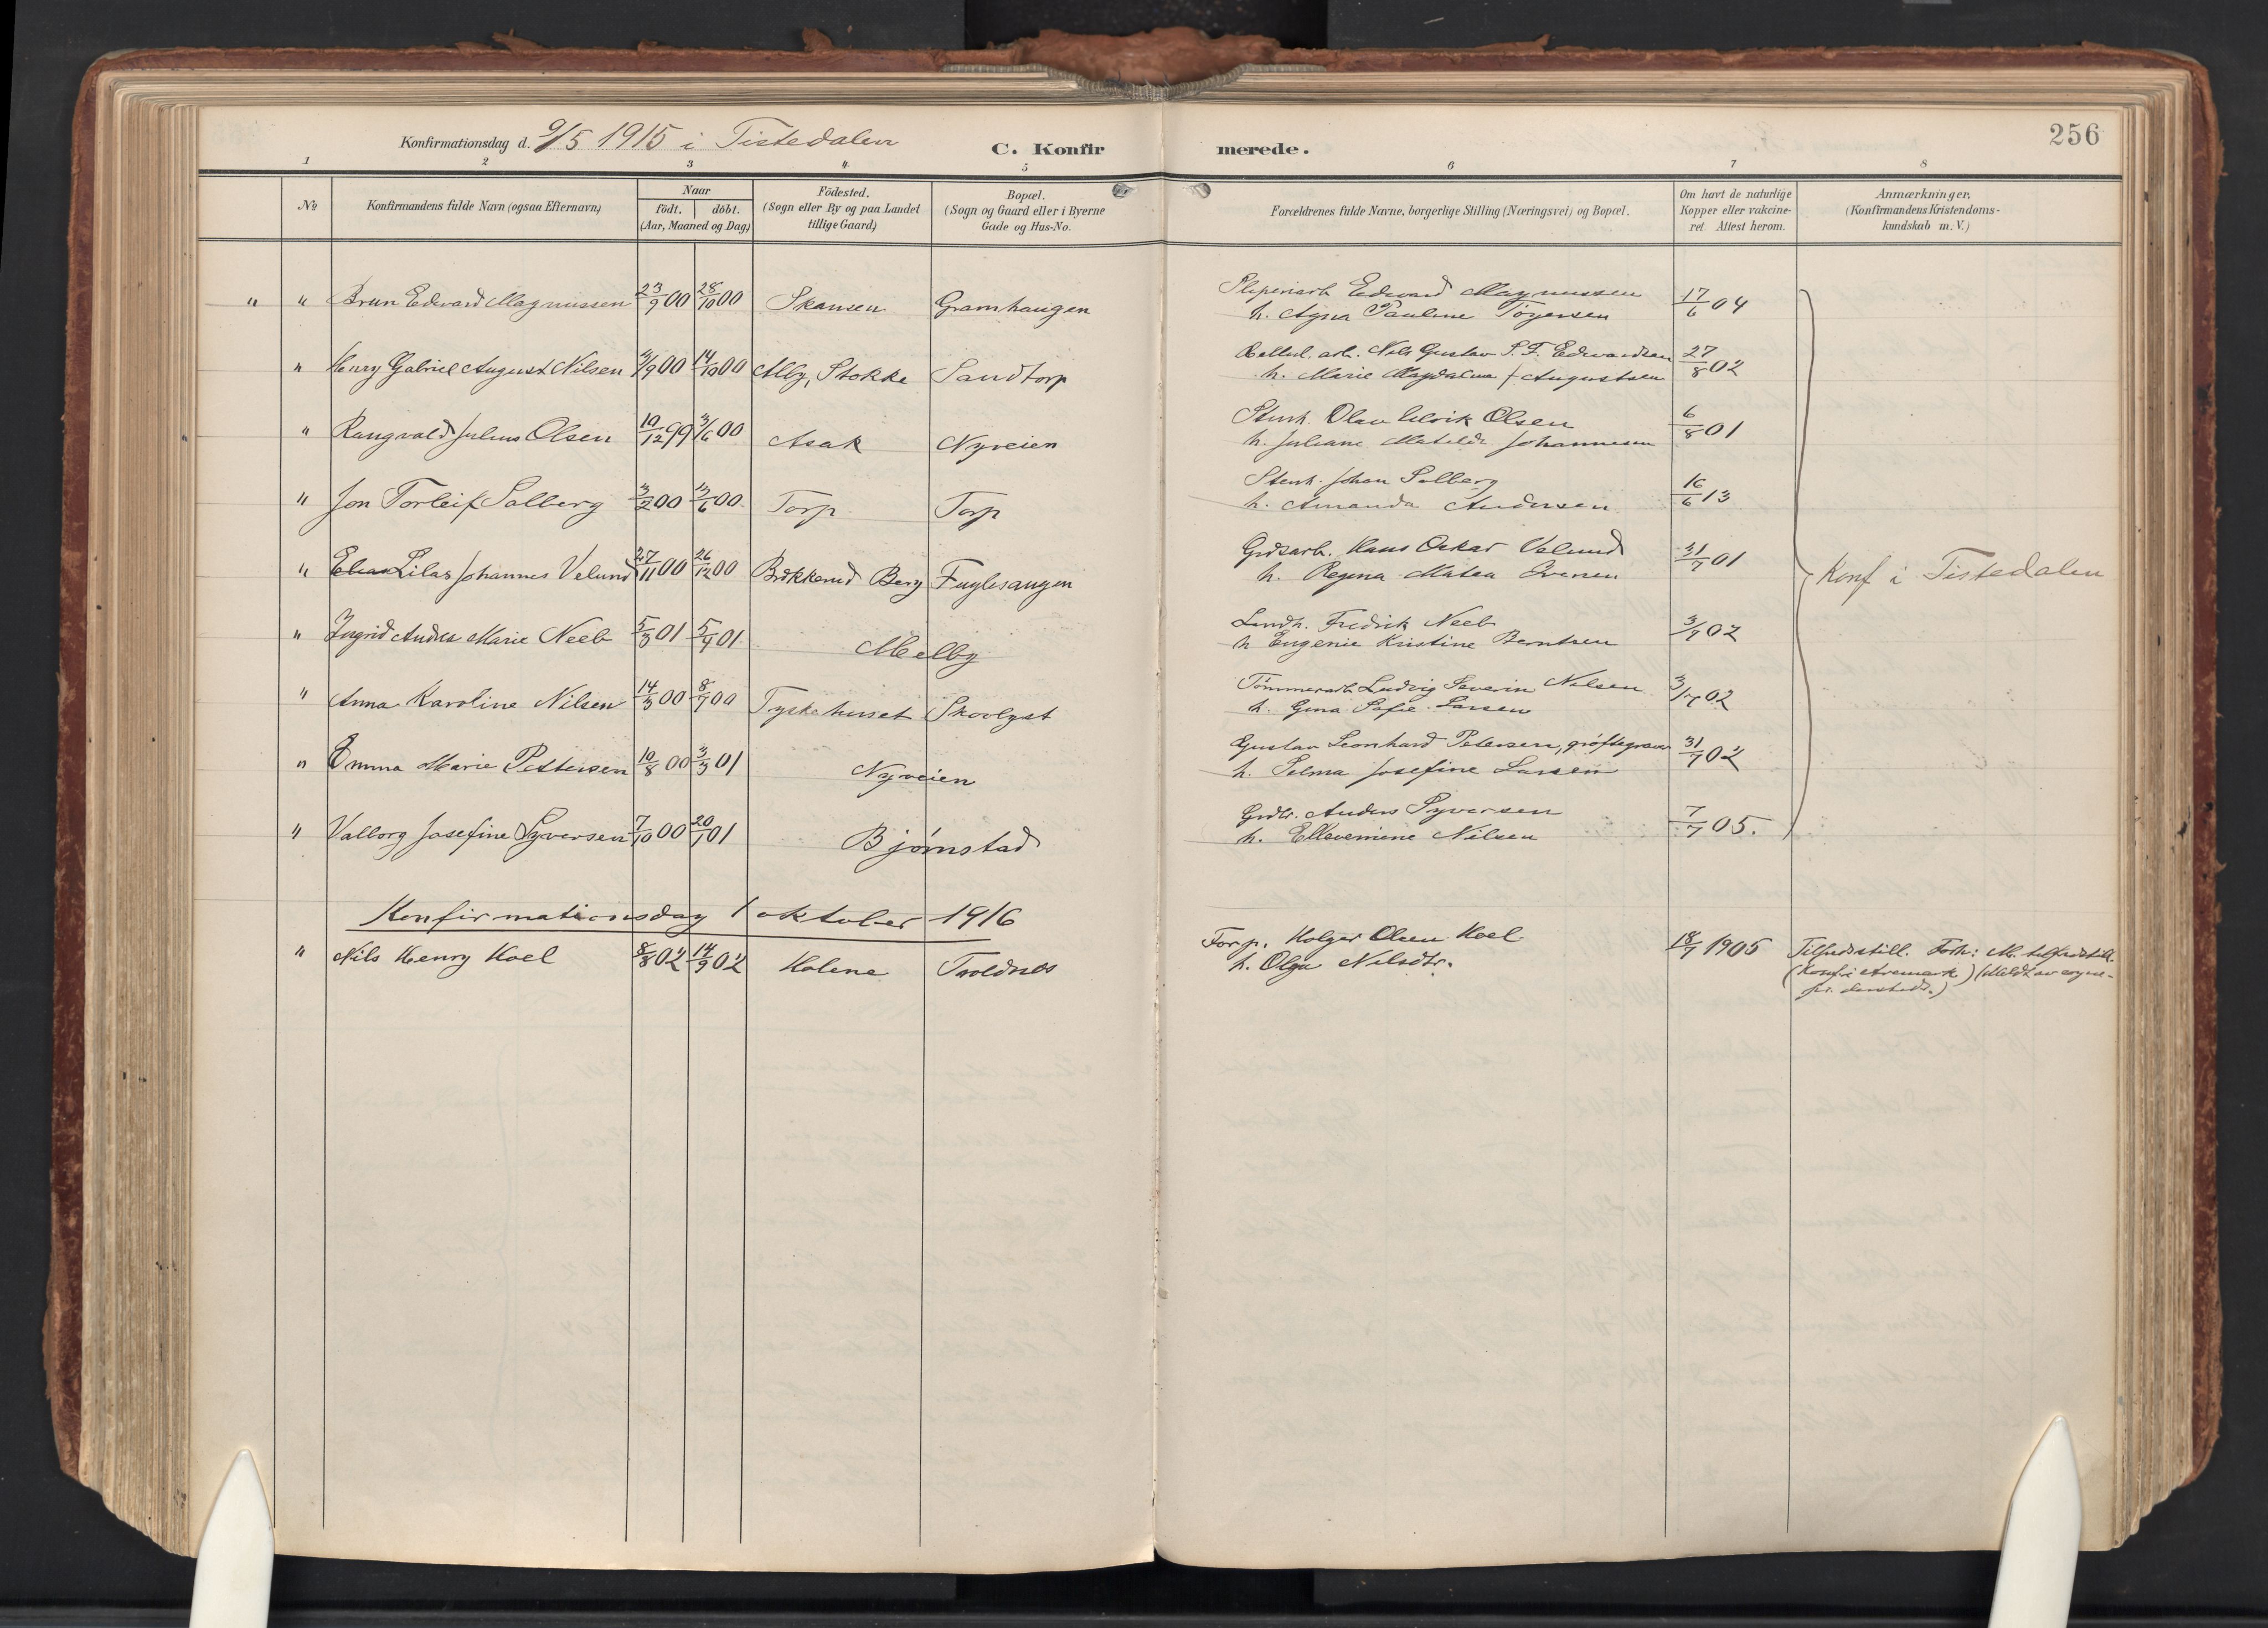 256
Konfirmationsdag d. 9/5 1915 i Tistedalen
C. Konfirmerede.
1 2 3 4 5 6 7 8
№
Konfirmandens fulde Navn (ogsaa Efternavn)
Naar
födt. | döbt.
(Aar, Maaned og Dag)
Födested.
(Sogn eller By og paa Landet
tillige Gaard)
Bopæl.
(Sogn og Gaard eller i Byerne
Gade og Hus-No.
Forældrenes fulde Navne, borgerlige Stilling (Næringsvei) og Bopæl.
Om havt de naturlige
Kopper eller vakcine-
ret. Attest herom.
Anmærkninger.
(Konfirmandens Kristendoms-
kundskab m. V.)
" " Brun Edvard Magnussen 23/9 00 28/10 00 Skansen Gramhaugen Sliperiarb. Edvard Magnussen 17/6 04
h. Agna Pauline Torgersen
" Henry Gabriel August Nilsen 3/9 00 14/10 00 Alby, Stokke Sandtorp arb. Nils Gustav P. F. Edvardsen 27/8 02
h. Marie Magdalena f Augustsen
" Rangvald Julius Olsen 10/12 99 3/6 00 Asak Nyveien Stenh. Olav Olsen 6/8 01
h. Juliane Matilde Johannesen
" Jon Torleif Solberg 3/2 00 13/6 00 Torp Torp Stenh. Johan Solberg 16/6 13
h. Amanda Andersen
" Lilas Johannes Velund 27/11 00 26/12 00 Brekkerud Berg Fuglesangen Grdsarb. Hans Oskar Velund 31/7 01
h. Regina Matea Evensen
Konf i Tistedalen
" Ingrid Andrea Marie Neeb 5/3 01 5/4 01 Melby Landh. Fredrik Neeb 3/9 02
h Eugenie Kristine Berntsen
" Anna Karoline Nilsen 14/3 00 8/7 00 Tyskehuset Skovlyst Tömmerarb. Ludvig Severin Nilsen 3/7 02
h. Gina Sofie Larsen
" Emma Marie Pettersen 10/8 00 3/3 01 Nyveien Gustav Leonhard Petersen, grøftegraver 31/7 02
h. Selma Josefine Larsen
" Valborg Josefine Syversen 7/10 00 20/1 01 Bjørnstad Grdbr. Anders Syversen 7/7 05.
h. Ellevenine Nilsen
Konfirmationsdag 1 oktober 1916
" Nils Henry Hoel 8/8 02 14/9 02 Holene Troldnes Forp. Holger Olsen Hoel 18/7 1905 Tilfredsstill. Forh: M. tilfredsstill.
h. Olga Nilsdtr. (Konf. i Aremark) (Meldt av sogne-
pr. dersteds.)